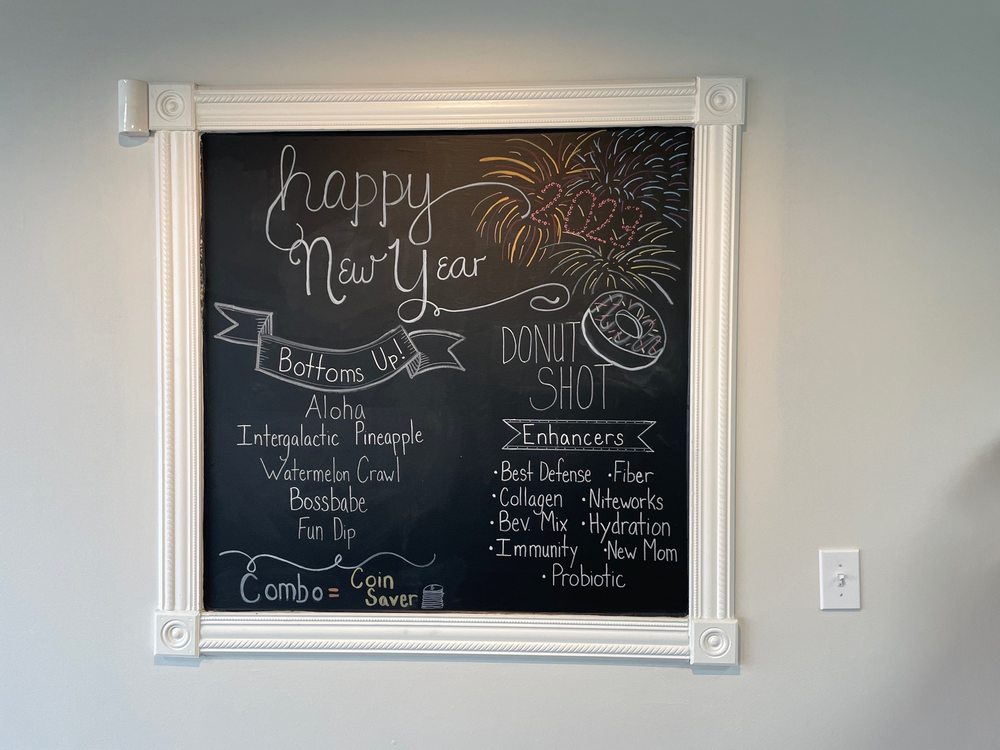 happy
New Year
2023
Bottoms Up!
Aloha
Intergalactic Pineapple
Watermelon Crawl
Bossbabe
Fun Dip
Combo = Coin Saver
DONUT
SHOT
Enhancers
·Best Defense ·Fiber
·Collagen ·Niteworks
·Bev. Mix ·Hydration
·Immunity ·New Mom
·Probiotic